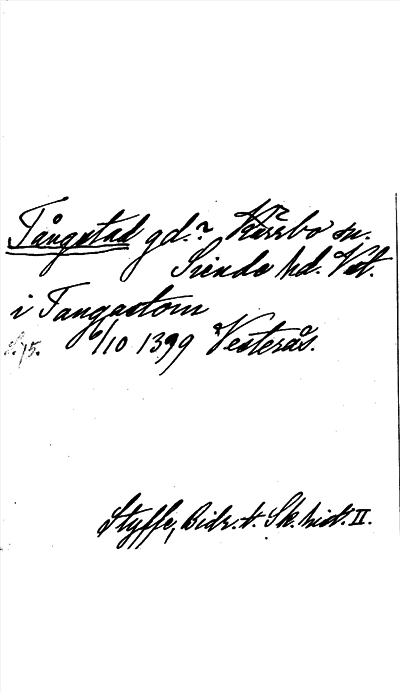 Tångstad gd.? Kärrbo sn.
Siende hd. Vst.
i Tangastom
6/10 1399 Vesterås.
S. 75.
Styffe, Bidr. t. Sk. hist. II.